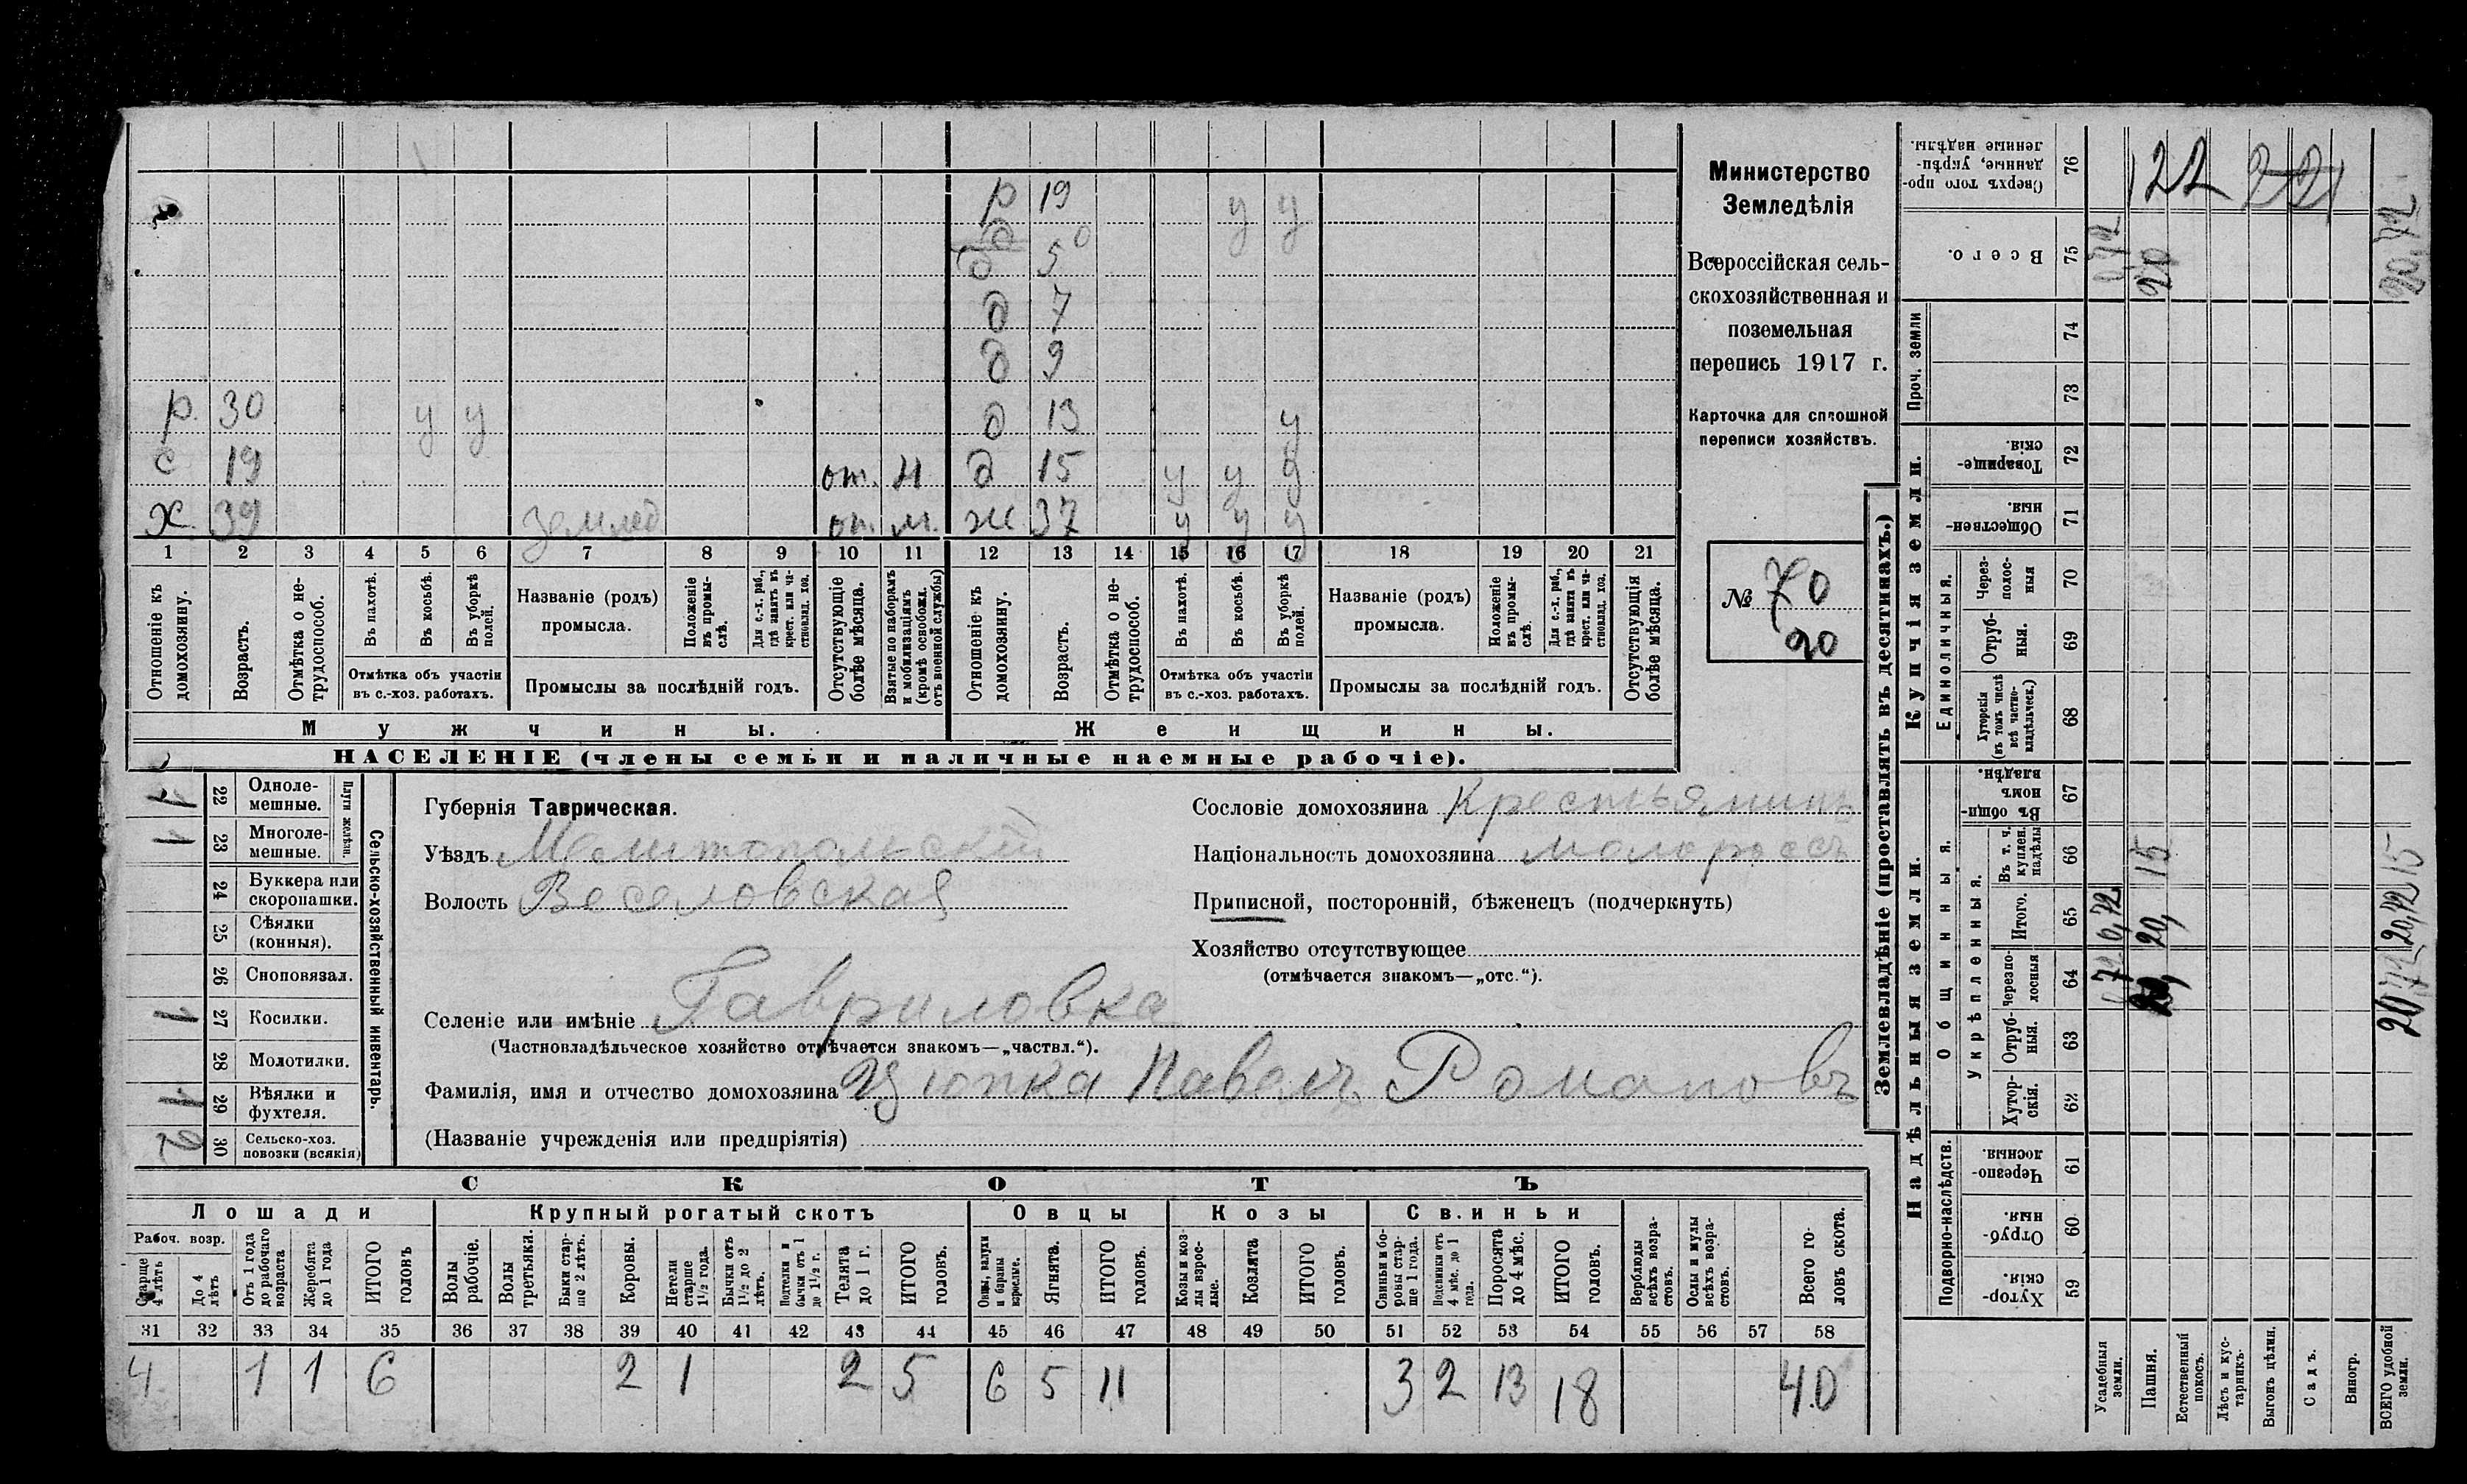 р 19 у у
д 5
д 7
д 9
р. 30 у у д 13 у
с 19 от. н д 15 у у у
х. 39 землед от. м. ж 37 у у у
1 2 3 4 5 6 7 8 9 10 11 12 13 14 15 16 17 18 19 20 21
Отношеніе къ домохозяину.
Возрастъ.
Отмѣтка о не-трудоспособ.
Въ пахотѣ.
Въ косьбѣ.
Въ уборкѣ полей.
Отмѣтка объ участіи
въ с.-хоз. работахъ.
Названіе (родъ)
промысла.
Положеніе въ промы-слѣ.
Для с.-х. раб., гдѣ занятъ въ крест. или ча-стновлад. хоз.
Промыслы за послѣдній годъ.
Отсутствующіе болѣе мѣсяца.
Взятые по наборамъ и мобилизаціямъ (кромѣ освобожд. отъ военной службы)
Отношеніе къ домохозяину.
Возрастъ.
Отмѣтка о не-трудоспособ.
Въ пахотѣ.
Въ косьбѣ.
Въ уборкѣ полей.
Отмѣтка объ участіи
въ с.-хоз. работахъ.
Названіе (родъ)
промысла.
Положеніе въ промы-слѣ.
Для с.-х. раб., гдѣ занята въ крест. или ча-стновлад. хоз.
Промыслы за послѣдній годъ.
Отсутствующія болѣе мѣсяца.
Мужчины. Женщины.
НАСЕЛЕНІЕ (члены семьи и наличные наемные рабочіе).
Министерство
Земледѣлія
Всероссійская сель-
скохозяйственная и
поземельная
перепись 1917 г.
Карточка для сплошной
переписи хозяйствъ.
№ 70
90
Сельско-хозяйственный инвентарь.
Плуги желѣзн.
1 22 Одноле-мешные.
1 23 Многоле-мешные.
24 Буккера или скоропашки.
25 Сѣялки (конныя).
26 Сноповязал.
1 27 Косилки.
28 Молотилки.
1 29 Вѣялки и фухтеля.
2 30 Сельско-хоз. повозки (всякія)
Губернія Таврическая.
Уѣздъ Мелитопольскій
Волость Веселовская
Сословіе домохозяина Крестьянинъ
Національность домохозяина малороссъ
Приписной, посторонній, бѣженецъ (подчеркнуть)
Хозяйство отсутствующее
(отмѣчается знакомъ—„отс.“).
Селеніе или имѣніе Гавриловка
(Частновладѣльческое хозяйство отмѣчается знакомъ—„частвл.“).
Фамилія, имя и отчество домохозяина Цюпка Павелъ Романовъ
(Названіе учрежденія или предпріятія)
СКОТЪ
Лошади Крупный рогатый скотъ Овцы Козы Свиньи
Рабоч. возр.
Старше 4 лѣтъ
До 4 лѣтъ
Отъ 1 года до рабочаго возраста
Жеребята до 1 года
ИТОГО головъ
Волы рабочіе.
Волы третьяки.
Быки стар-ше 2 лѣтъ.
Коровы.
Нетели старше 1½ года.
Бычки отъ 1½ до 2 лѣтъ.
Подтелки и бычки отъ 1 до 1½ г.
Телята до 1 г.
ИТОГО головъ.
Овцы, валухи и бараны взрослые.
Ягнята.
ИТОГО головъ.
Козы и коз-лы взрос-лые.
Козлята
ИТОГО головъ.
Свиньи и бо-ровы стар-ше 1 года.
Подсвинки отъ 4 мѣс. до 1 года.
Поросята до 4 мѣс.
ИТОГО головъ.
Верблюды всѣхъ возра-стовъ.
Ослы и мулы всѣхъ возра-стовъ.
Всего го-ловъ скота.
31 32 33 34 35 36 37 38 39 40 41 42 43 44 45 46 47 48 49 50 51 52 53 54 55 56 57 58
4 1 1 6 2 1 2 5 6 5 11 3 2 13 18 40
Землевладѣніе (проставлять въ десятинахъ.)
Надѣльныя земли. Купчія земли.
Подворно-наслѣдств.
Общинныя.
Укрѣпленныя.
Единоличныя.
Проч. земли
59 Хутор-скія.
60 Отруб-ныя.
61 Черезпо-лосныя.
62 Хутор-скія.
63 Отруб-ныя.
64 Черезпо-лосныя
65 Итого.
66 Въ т. ч. куплен. надѣлы
67 Въ общи-номъ владѣн.
68 Хуторскія (въ томъ числѣ всѣ частно-владѣльческ.)
69 Отруб-ныя.
70 Через-полос-ныя
71 Обществен-ныя.
72 Товарище-скія.
73
74
75 Всего.
76 Сверхъ того про-данные, укрѣп-ленные надѣлы.
Усадебныя земли. 0,72 0,72 0,72
Пашня. 20, 20, 15 20 122
Естественный покосъ.
Лѣсъ и кус-тарникъ.
Выгонъ цѣлин.
Садъ.
Виногр.
ВСЕГО удобной земли. 20,72 20,72 15 20,72